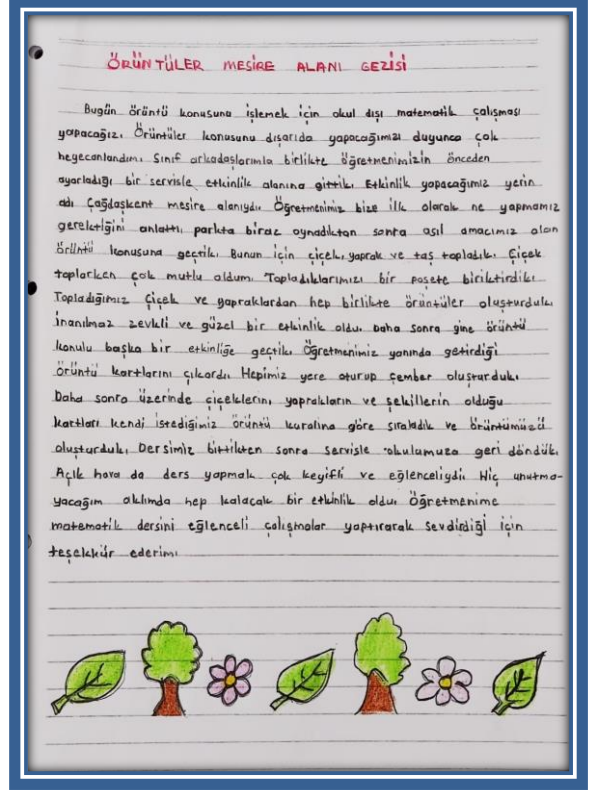 ÖRÜNTÜLER MESİRE ALANI GEZİSİ
Bugün örüntü konusunu işlemek için okul dışı matematik çalışması
yapacağız. Örüntüler konusunu dışarıda yapacağımızı duyunca çok
heyecanlandım. Sınıf arkadaşlarımla birlikte öğretmenimizin önceden
ayarladığı bir servisle etkinlik alanına gittik. Etkinlik yapacağımız yerin
adı Çağdaşkent mesire alanıydı. Öğretmenimiz bize ilk olarak ne yapmamız
gerektiğini anlattı. parkta biraz oynadıktan sonra asıl amacımız olan
örüntü konusuna geçtik. Bunun için çiçek, yaprak ve taş topladık. Çiçek
toplarken çok mutlu oldum. Topladıklarımızı bir poşete biriktirdik.
Topladığımız çiçek ve yapraklardan hep birlikte örüntüler oluşturduk.
inanılmaz zevkli ve güzel bir etkinlik oldu. Daha sonra yine örüntü
konulu başka bir etkinliğe geçtik. Öğretmenimiz yanında getirdiği
örüntü kartlarını çıkardı. Hepimiz yere oturup çember oluşturduk.
Daha sonra üzerinde çiçeklerin, yaprakların ve şekillerin olduğu
kartları kendi istediğimiz örüntü kuralına göre sıraladık ve örüntümüzü
oluşturduk. Dersimiz bittikten sonra servisle okulumuza geri döndük.
Açık hava da ders yapmak çok keyifli ve eğlenceliydi. Hiç unutma-
yacağım aklımda hep kalacak bir etkinlik oldu. Öğretmenime
matematik dersini eğlenceli çalışmalar yaptırarak sevdirdiği için
teşekkür ederim.